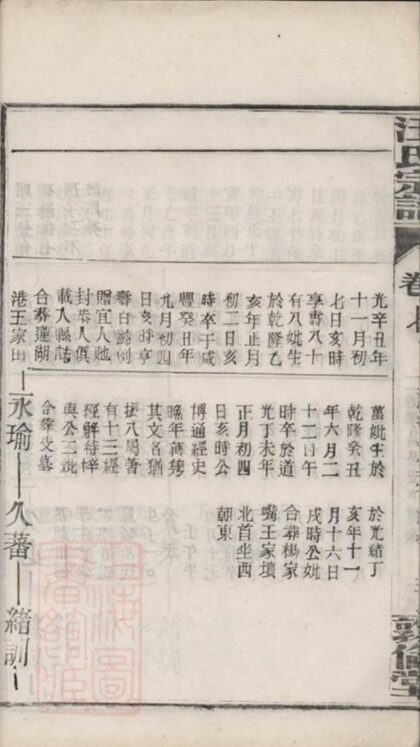 汪氏宗譜
卷七
敦倫堂
光辛丑年
十一月初
七日亥時
享壽八十
有八妣生
於乾隆乙
亥年正月
初二日亥
時卒于咸
豐癸丑年
九月初四
日亥時享
壽百齡例
贈宜人貤
封恭人俱
載入縣誌
合葬蓮湖
港王家田
永瑜
萬妣生於
乾隆癸丑
年六月二
十二日午
時卒於道
光丁未年
正月初四
日亥時公
博通經史
晚年
其文名猶
振八
有十三經
解待梓
與公三妣
合葬
久蕃
於光緒丁
亥年十一
月十六日
戌時公妣
合葬楊家
嘴王家墳
北首坐西
朝東
緒訓